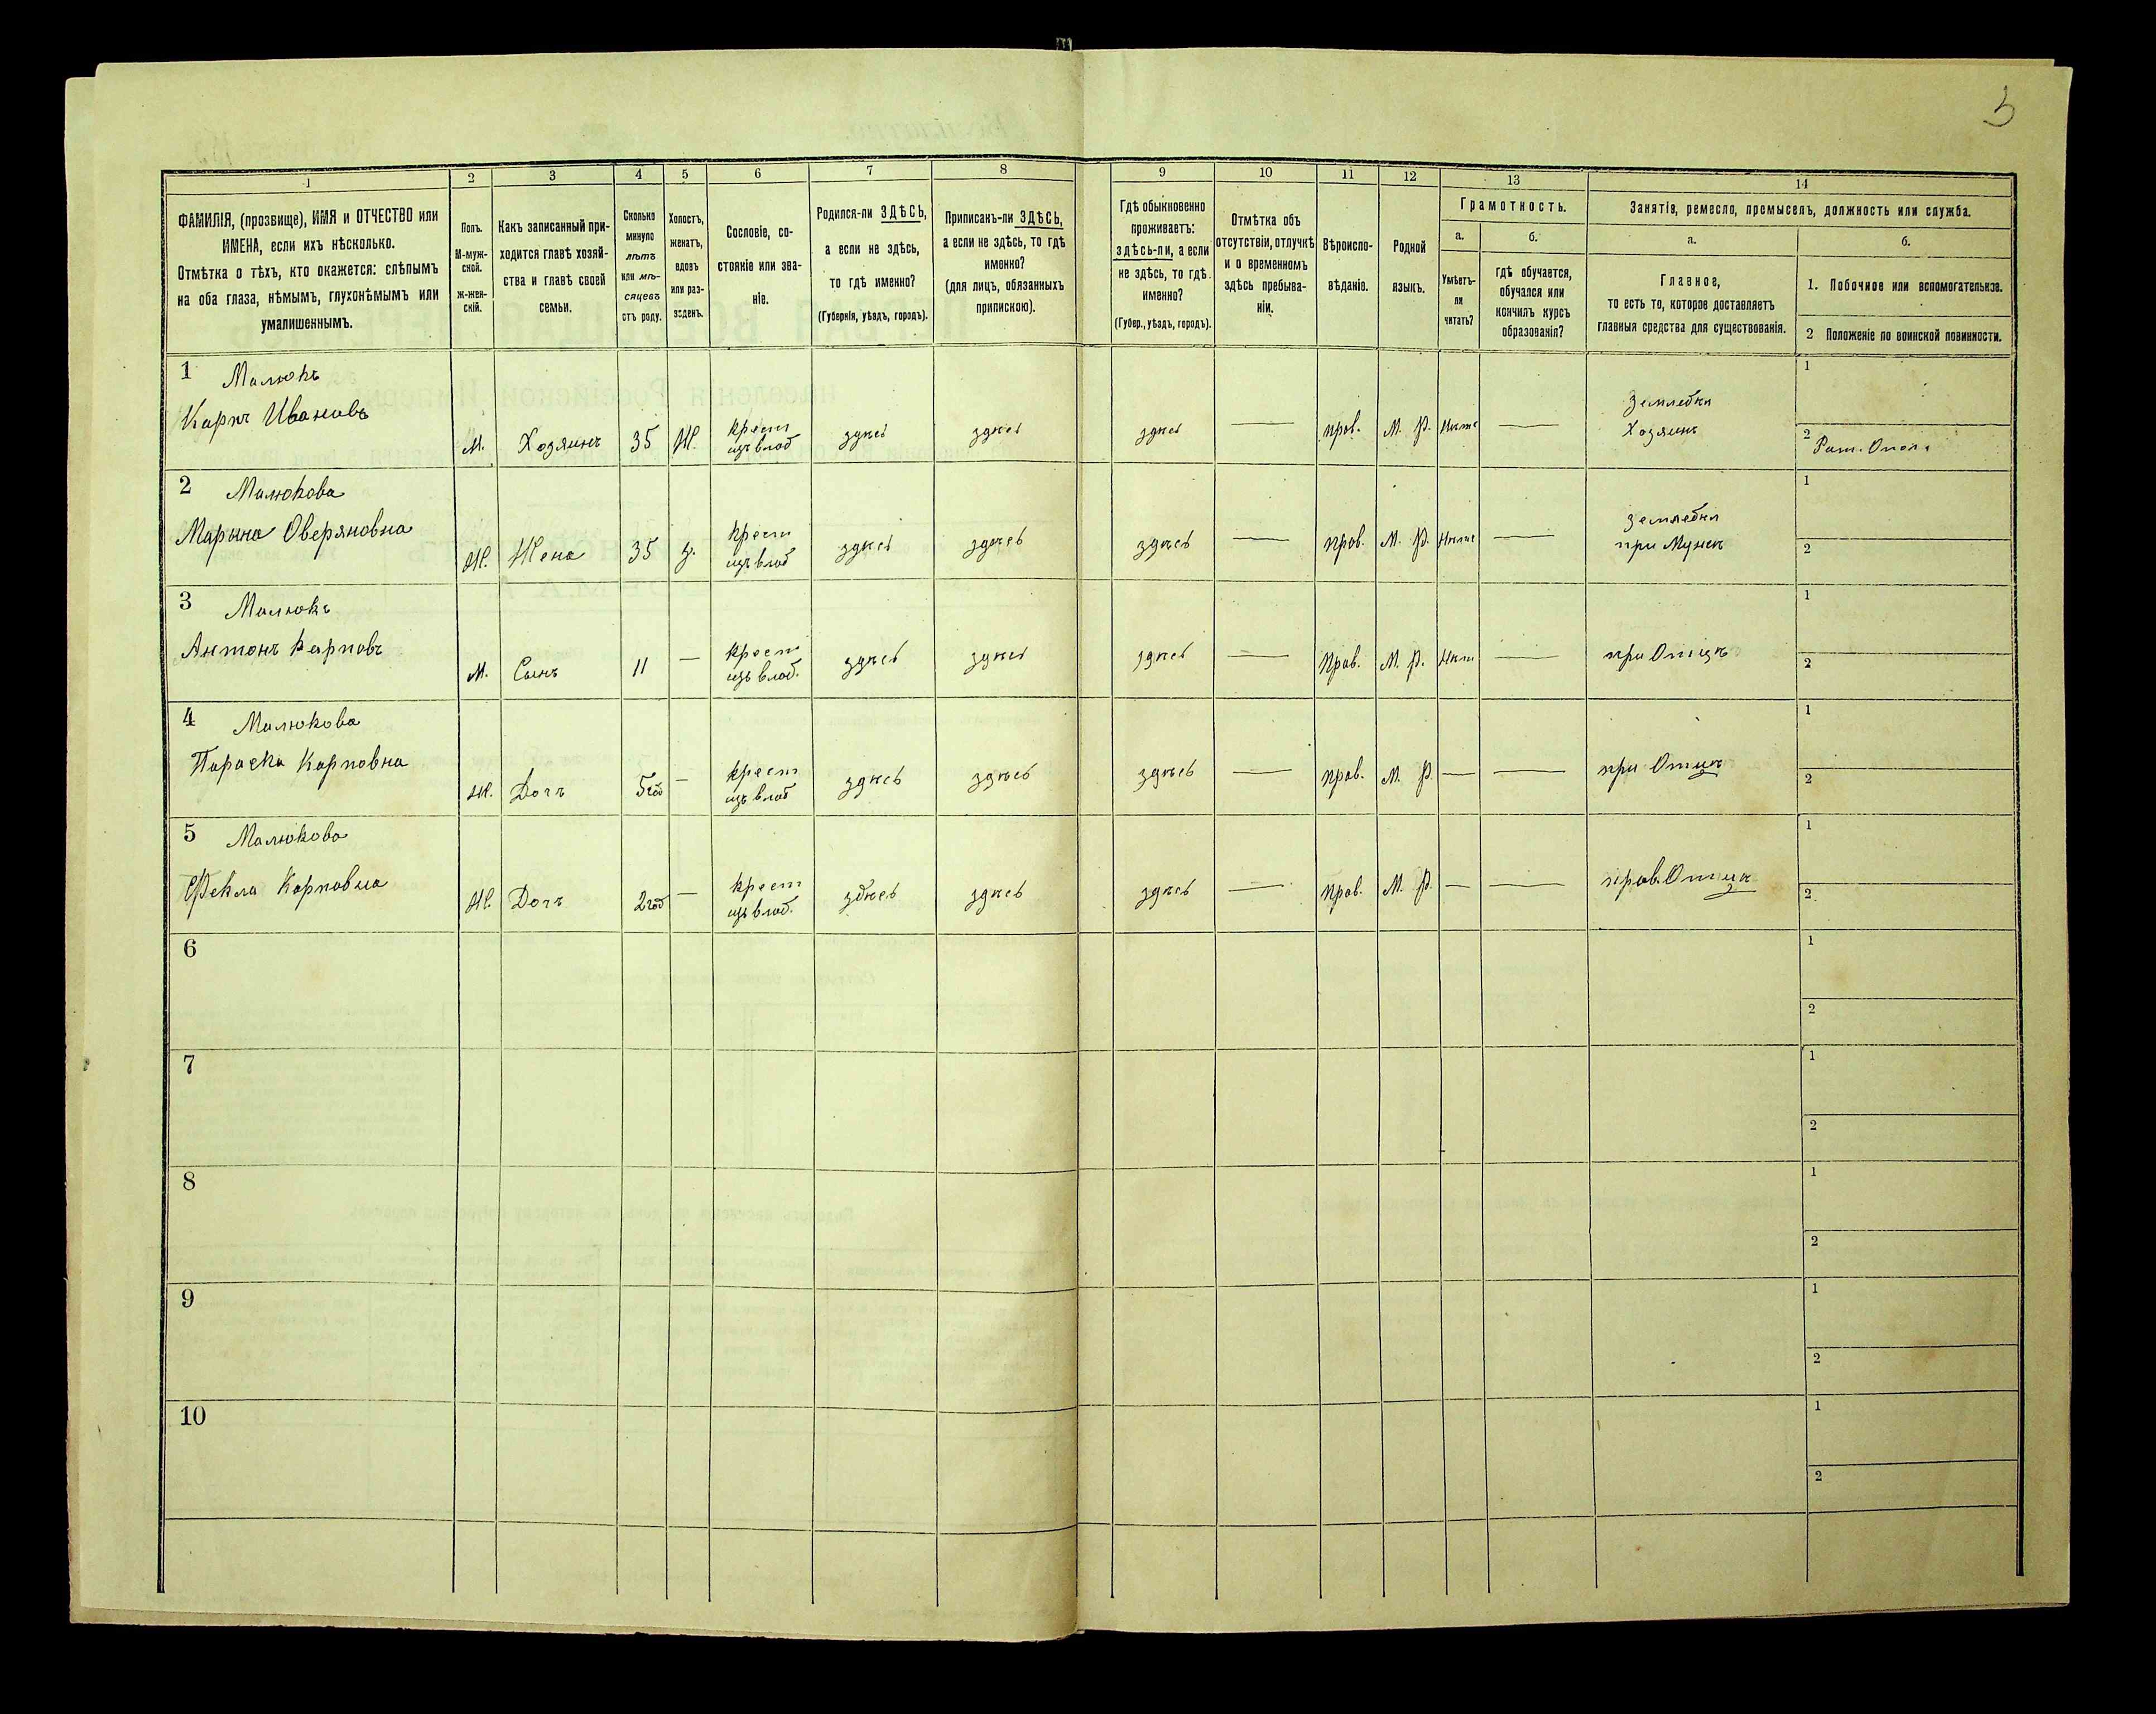 3
1
2
3
4
5
6
7
8
9
10
11
12
13
14
ФАМИЛІЯ, (прозвище), ИМЯ и ОТЧЕСТВО или
ИМЕНА, если ихъ нѣсколько.
Отмѣтка о тѣхъ, кто окажется: слѣпымъ
на оба глаза, нѣмымъ, глухонѣмымъ или
умалишеннымъ.
Полъ.
М-муж-
ской.
Ж-жен-
скій.
Какъ записанный при-
ходится главѣ хозяй-
ства и главѣ своей
семьи.
Сколько
минуло
лѣтъ
или мѣ-
сяцевъ
отъ роду.
Холостъ,
женатъ,
вдовъ
или раз-
веденъ.
Сословіе, со-
стояніе или зва-
ніе.
Родился-ли ЗДѢСЬ,
а если не здѣсь,
то гдѣ именно?
(Губернія, уѣздъ, городъ).
Приписанъ-ли ЗДѢСЬ,
а если не здѣсь, то гдѣ
именно?
(для лицъ, обязанныхъ
припискою).
Гдѣ обыкновенно
проживаетъ:
здѣсь-ли, а если
не здѣсь, то гдѣ
именно?
(Губер., уѣздъ, городъ).
Отмѣтка объ
отсутствіи, отлучкѣ
и о временномъ
здѣсь пребыва-
ніи.
Вѣроиспо-
вѣданіе.
Родной
языкъ.
Грамотность.
а.
Умѣетъ-
ли
читать?
б.
гдѣ обучается,
обучался или
кончилъ курсъ
образованія?
Занятія, ремесло, промыселъ, должность или служба.
а.
Главное,
то есть то, которое доставляетъ
главныя средства для существованія.
б.
1. Побочное или вспомогательное.
2 Положеніе по воинской повинности.
1 Малюкъ
Карпъ Ивановъ
М. Хозяинъ 35 Ж. крест
изъ влад здѣсь здѣсь здѣсь — прав. М. Р. Нѣтъ —
Хозяинъ
1
2
2 Малюкова
Марына Оверяновна
Ж. Жена 35 з. крест
изъ влад здѣсь здѣсь здѣсь — прав. М. Р. Нѣтъ —
при Мужѣ
1
2
3 Малюкъ
Антонъ Карповъ
М. Сынъ 11 — крест
изъ влад. здѣсь здѣсь здѣсь — Прав. М. Р. Нѣтъ —
при Отцѣ
1
2
4 Малюкова
Параска Карповна
Ж. Дочь 5 год — крест
изъ влад здѣсь здѣсь здѣсь — прав. М. Р. — —
при Отцѣ
1
2
5 Малюкова
Фекла Карповна
Ж. Дочь 2 год — крест
изъ влад. здѣсь здѣсь здѣсь — прав. М. Р. — —
Отцѣ
1
2
6
1
2
7
1
2
8
1
2
9
1
2
10
1
2